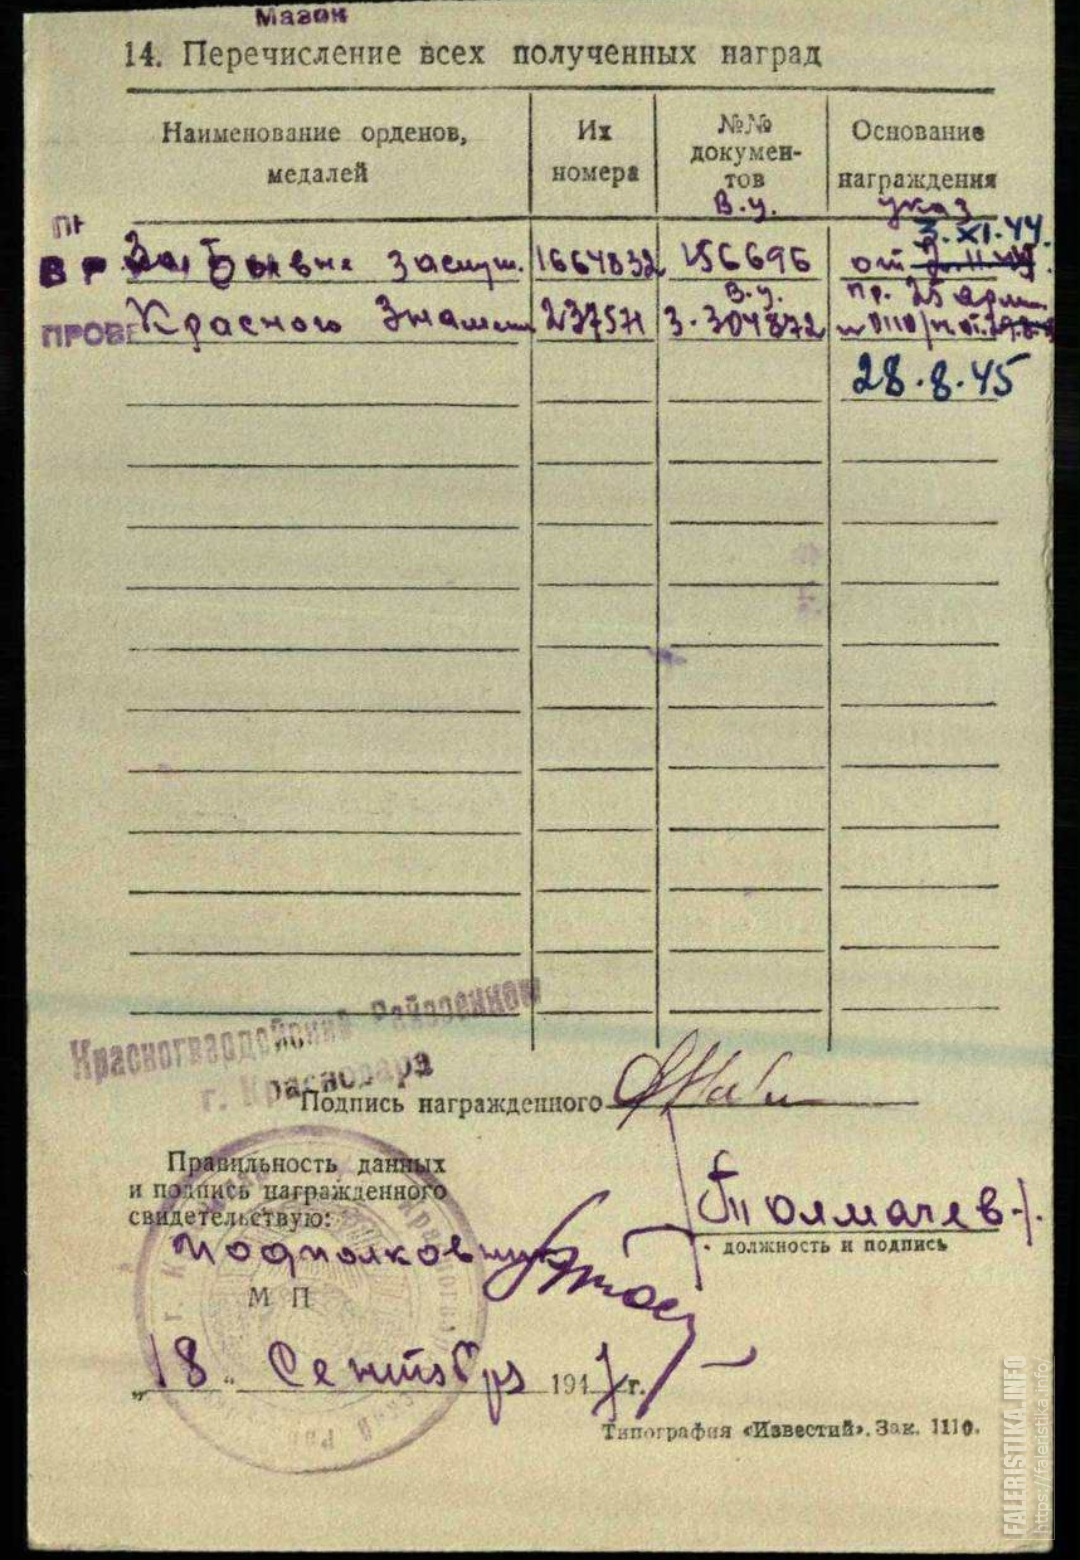 Мазон
14. Перечисление всех полученных наград
Наименование орденов,
медалей
Их
номера
№№
докумен-
тов
Основание
награждения
В.у. Указ
3.XI.44.
За боевые заслуг. 1664832 156696 от
В.у. Пр. 25 арм
ПРОВЕ Красного Знамени 237571 З-304872
28.8.45
Красногвардейский Райвоенком
г. Краснодара
Подпись награжденного
Правильность данных
и подпись награжденного
свидетельствую:
Толмачев
должность и подпись
Подполковник
МП
„18“ Сентября 1947 г.
Типография «Известий». Зак. 1110.
FALERISTIKA.INFO
https://faleristika.info